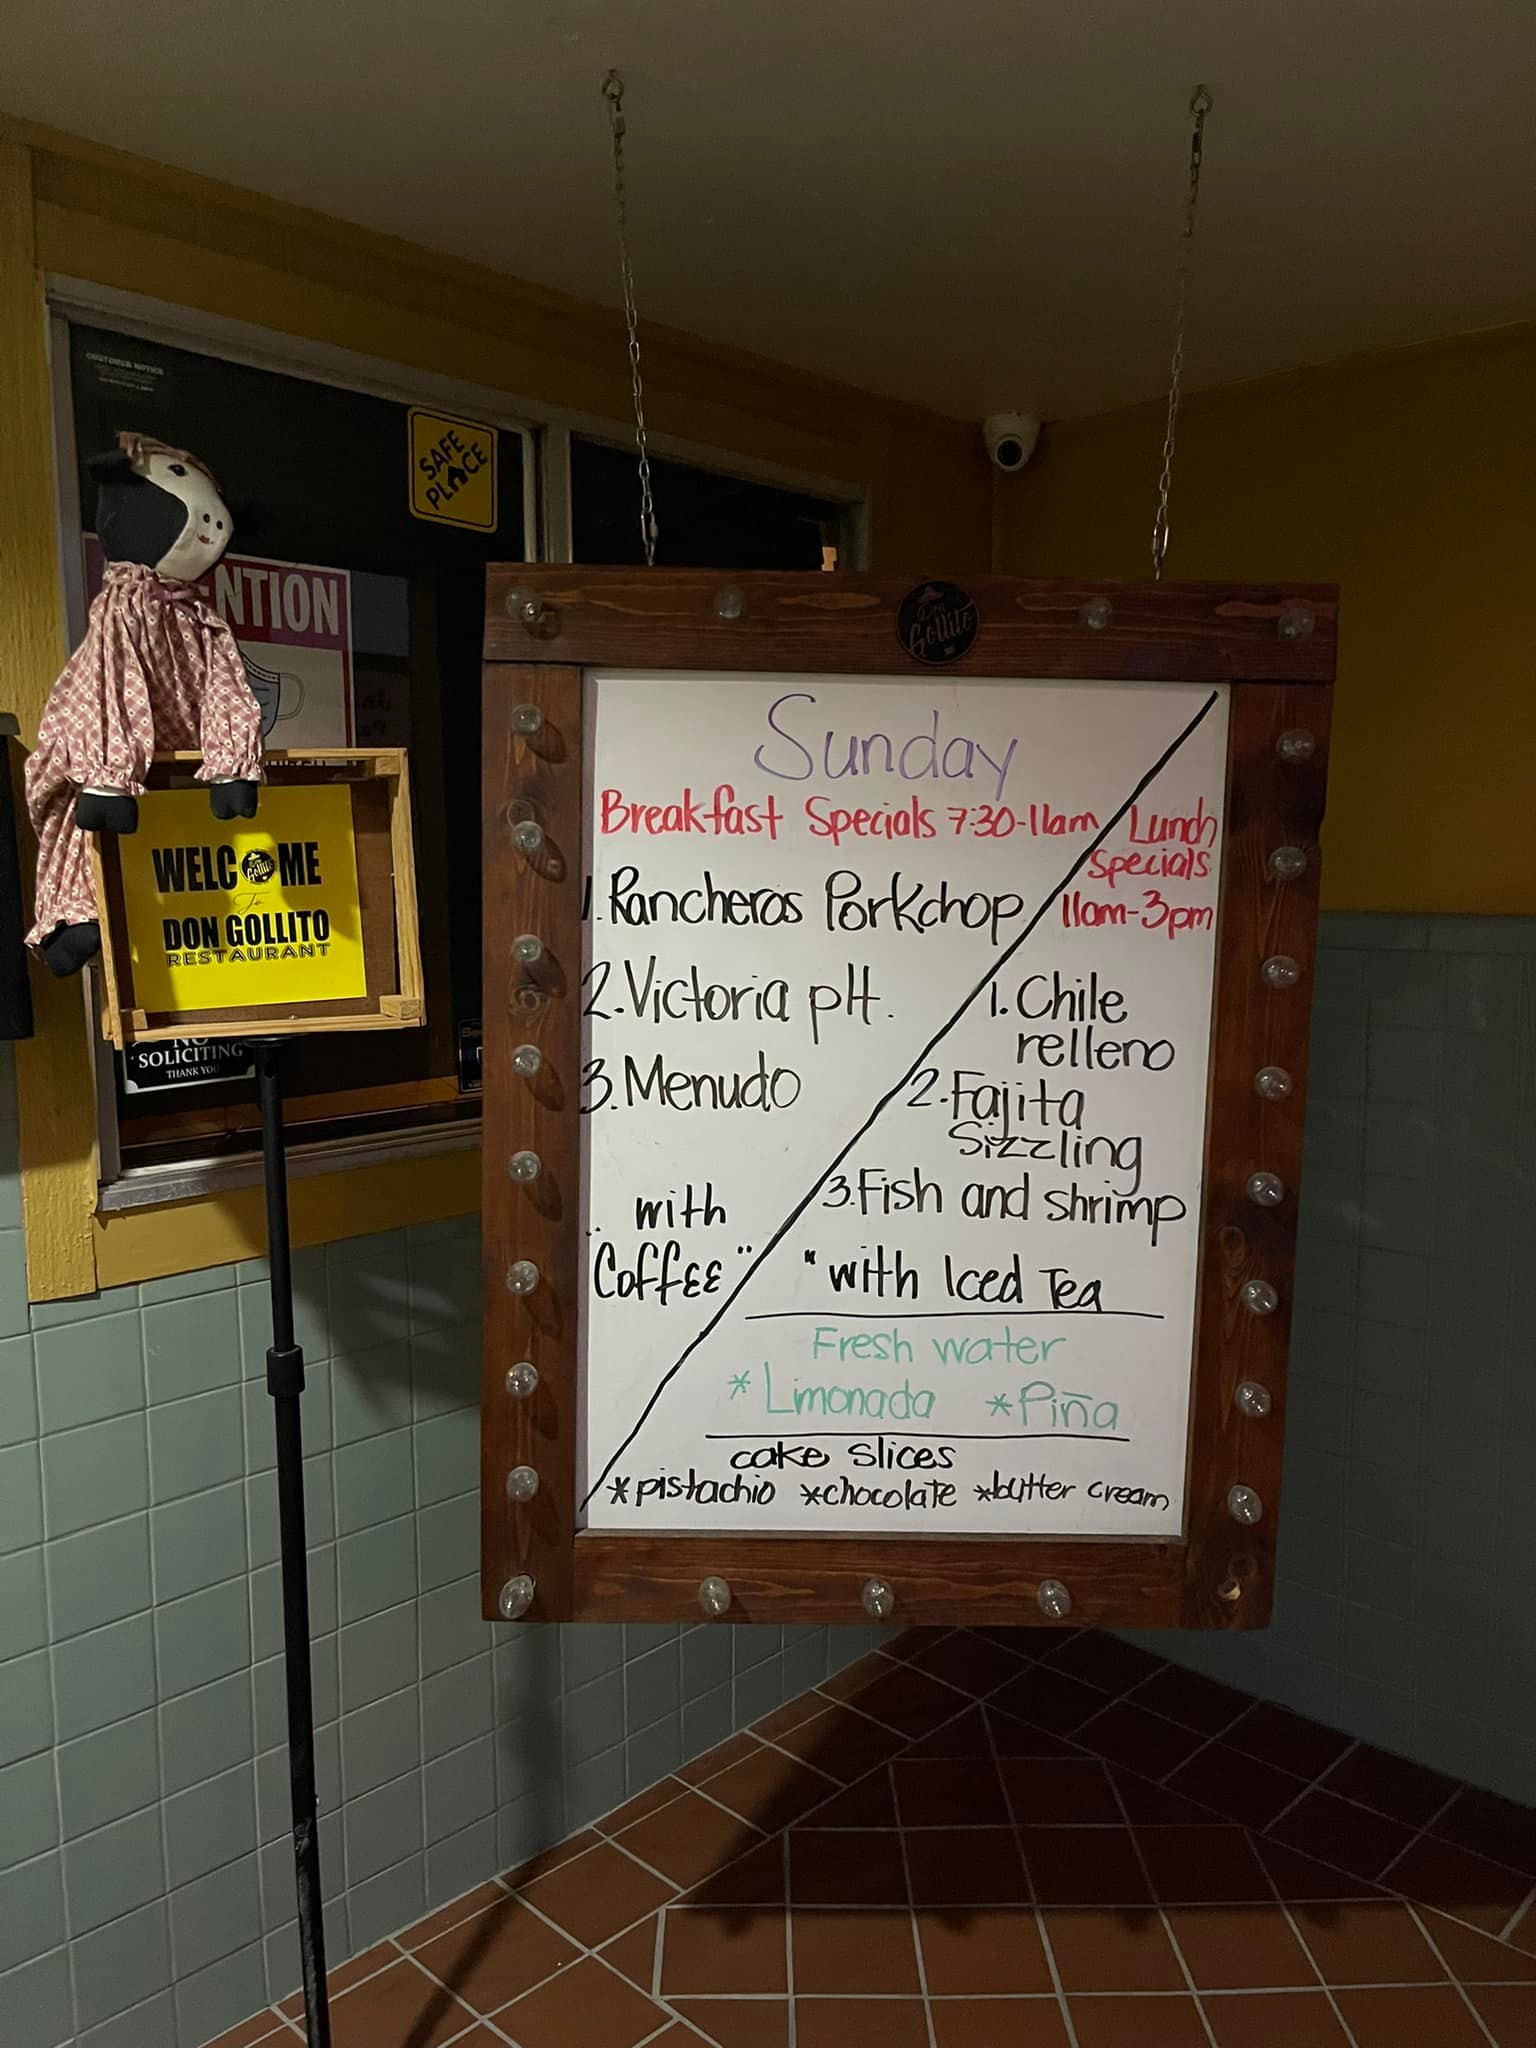 CUSTOMER NOTICE
SAFE
PLACE
NTION
WELCOME
To
DON GOLLITO
RESTAURANT
NO
SOLICITING
THANK YOU
Don
Gollito
Sunday
Breakfast Specials 7:30-11am
1. Rancheros Porkchop
2. Victoria plt.
3. Menudo
" with
Coffee "
Lunch
Specials
11am-3pm
1. Chile
relleno
2. Fajita
Sizzling
3. Fish and shrimp
"with Iced Tea
Fresh water
* Limonada * Piña
cake slices
*pistachio *chocolate *butter cream